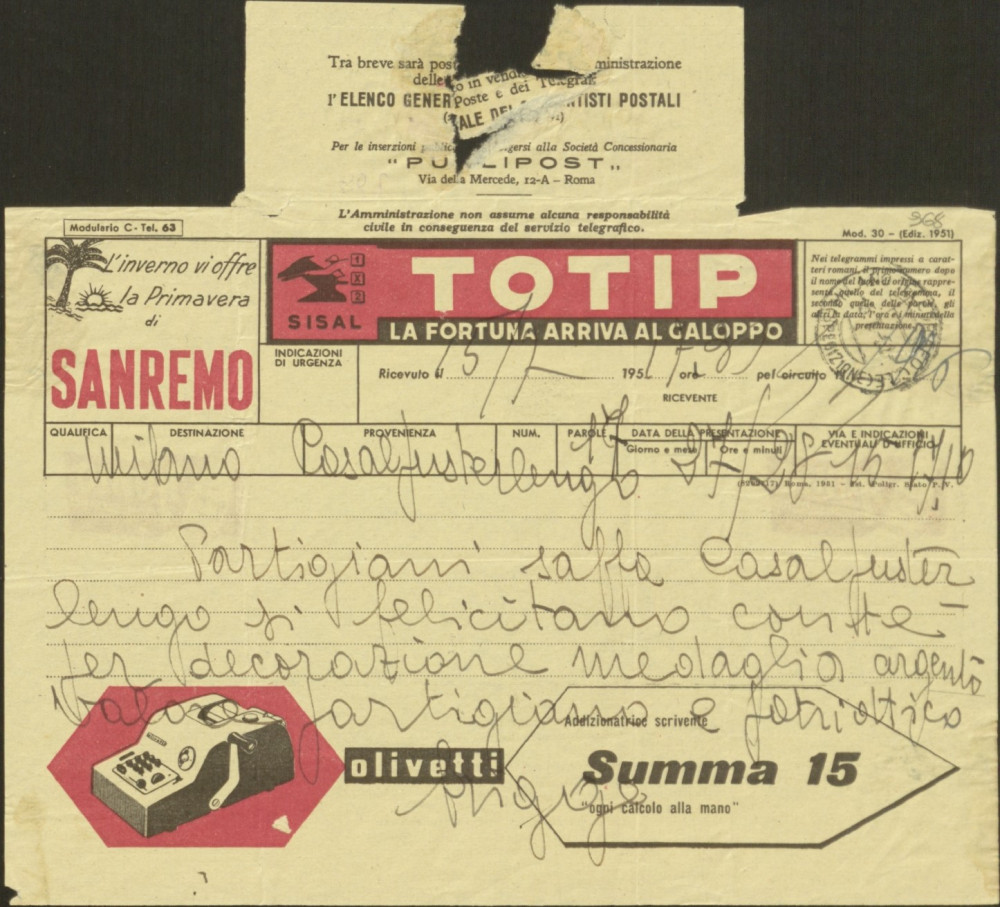 Tra breve sarà ministrazione
delle
in vendi
Poste e dei Telegrafi
l'ELENCO GENER TISTI POSTALI
ALE DEI
Per le inserzioni gersi alla Società Concessionaria
"PU LIPOST"
Via della Mercede, 12-A - Roma
L'Amministrazione non assume alcuna responsabilità
civile in conseguenza del servizio telegrafico.
Modulario C - Tel. 63
368
Mod. 30 - (Ediz. 1951)
L'inverno vi offre
la Primavera
di
SANREMO
1
X
2
SISAL
TOTIP
LA FORTUNA ARRIVA AL GALOPPO
Nei telegrammi impressi a carat-
teri romani, il primo numero dopo
il nome del luogo di origine rappre-
senta quello del telegramma, il
secondo quello delle parole, gli
altri la data, l'ora e i minuti della
presentazione.
INDICAZIONI
DI URGENZA
Ricevuto il 15/7 195 ore pel circuito N.
RICEVENTE
QUALIFICA DESTINAZIONE PROVENIENZA NUM. PAROLE DATA DELLA PRESENTAZIONE VIA E INDICAZIONI
Giorno e mese Ore e minuti EVENTUALI D'UFFICIO
Milano Casalpusterlengo 97/28 15 17/10
Roma, 1951 - Ist. Poligr. Stato P. V.
Partigiani saffa Casalpuster
lengo si felicitano con te
per decorazione medaglia argento
valore partigiano e patriottico
olivetti
Addizionatrice scrivente
Summa 15
"ogni calcolo alla mano"